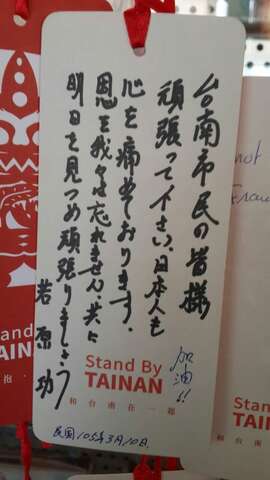 台南市民の皆様
頑張って下さい、日本人も
心を痛めております。
恩を我々は忘れません。共に
明日を見つめ頑張りましょう
岩原功
加油!!
Stand By
TAINAN
和台南在一起
民国105年3月10日.
Stand
TAINA
抱
not
Stand
TAIN
和